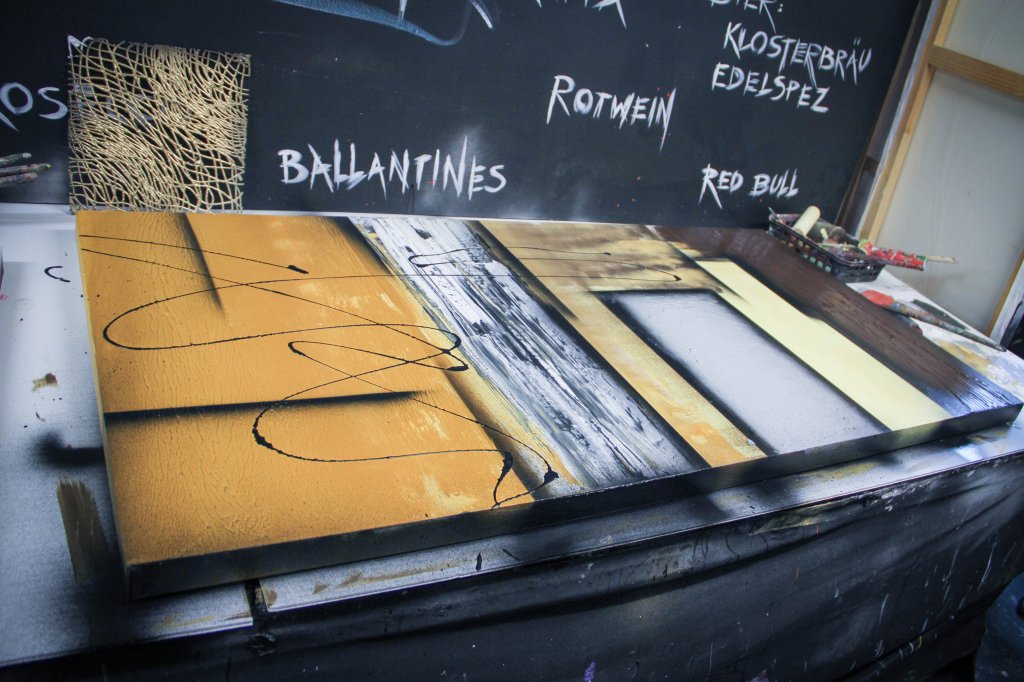 BIER:
KLOSTERBRÄU
EDELSPEZ
ROTWEIN
BALLANTINES
RED BULL